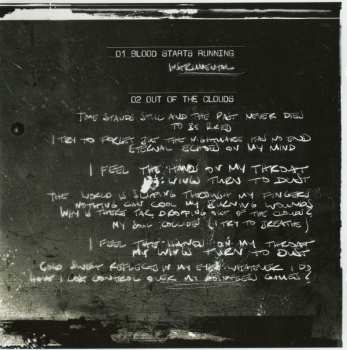 01 BLOOD STARTS RUNNING
INSTRUMENTAL
02 OUT OF THE CLOUDS
TIME STANDS STILL AND THE PAST NEVER DIED
TO BE
I TRY TO FORGET BUT THE NIGHTMARE HAS NO END
ETERNAL ECHOES ON MY MIND
I FEEL THE HAND ON MY THROAT
MY WINGS TURN TO DUST
THE WORLD IS SLIPPING THROUGH MY FINGERS
NOTHING CAN COOL MY BURNING WOUNDS
WHY IS THERE TAR DROPPING OUT OF THE CLOUDS?
MY SOUL COLLIDES (I TRY TO BREATHE)
I FEEL THE HAND ON MY THROAT
MY WINGS TURN TO DUST
COLD SWEAT REFLECTS IN MY EYES WHATEVER I DO
HAVE I LOST CONTROL OVER MY GAMES?